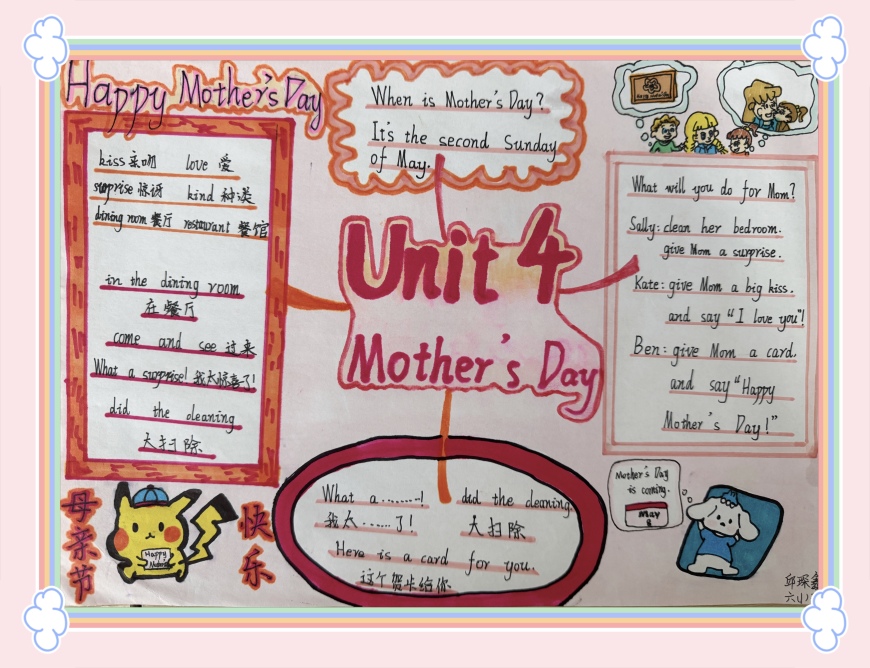 Happy Mother's Day
kiss 亲吻 love 爱
surprise 惊讶 kind 种类
dining room 餐厅 restaurant 餐馆
in the dining room
在餐厅
come and see 过来
What a surprise! 我太惊喜了!
did the cleaning
大扫除
母亲节
快乐
Happy
When is Mother's Day?
It's the second Sunday
of May.
Unit 4
Mother's Day
What a ........!
我太......了!
did the cleaning
大扫除
Here is a card for you.
这个贺卡给你
What will you do for Mom?
Sally: clean her bedroom.
give Mom a surprise.
Kate: give Mom a big kiss.
and say "I love you"!
Ben: give Mom a card.
and say "Happy
Mother's Day!"
Mother's Day
is coming.
May
8
邱琛
六小